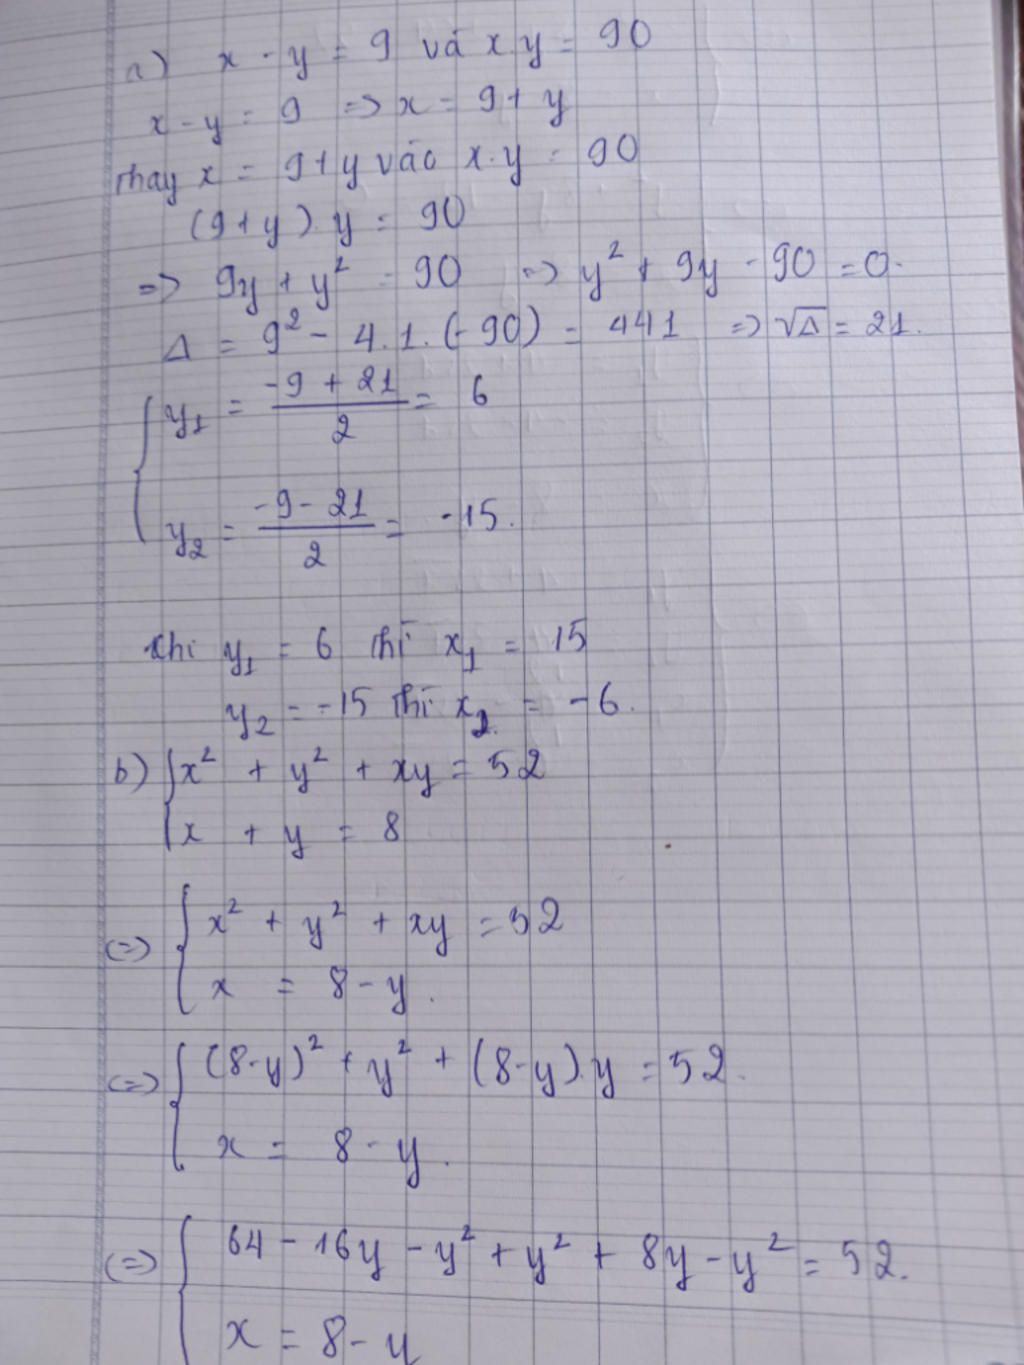 a) x - y = 9 và x.y = 90
x - y = 9 => x = 9 + y
thay x = 9 + y vào x.y = 90
(9 + y).y = 90
=> 9y + y² = 90 => y² + 9y - 90 = 0.
Δ = 9² - 4.1.(-90) = 441 => √Δ = 21.
{ y₁ = (-9 + 21)/2 = 6
y₂ = (-9 - 21)/2 = -15.
Khi y₁ = 6 thì x₁ = 15
y₂ = -15 thì x₂ = -6.
b) { x² + y² + xy = 52
x + y = 8
(=) { x² + y² + xy = 52
x = 8 - y.
(=) { (8-y)² + y² + (8-y).y = 52.
x = 8 - y.
(=) { 64 - 16y - y² + y² + 8y - y² = 52.
x = 8 - y